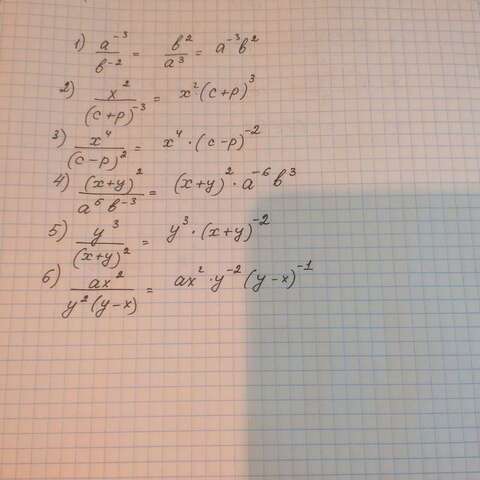 1) a⁻³/в⁻² = в²/a³ = a⁻³в²
2) x²/(c+p)⁻³ = x²·(c+p)³
3) x⁴/(c-p)² = x⁴·(c-p)⁻²
4) (x+y)²/a⁶в⁻³ = (x+y)²·a⁻⁶в³
5) y³/(x+y)² = y³·(x+y)⁻²
6) ax²/y²(y-x) = ax²·y⁻²(y-x)⁻¹